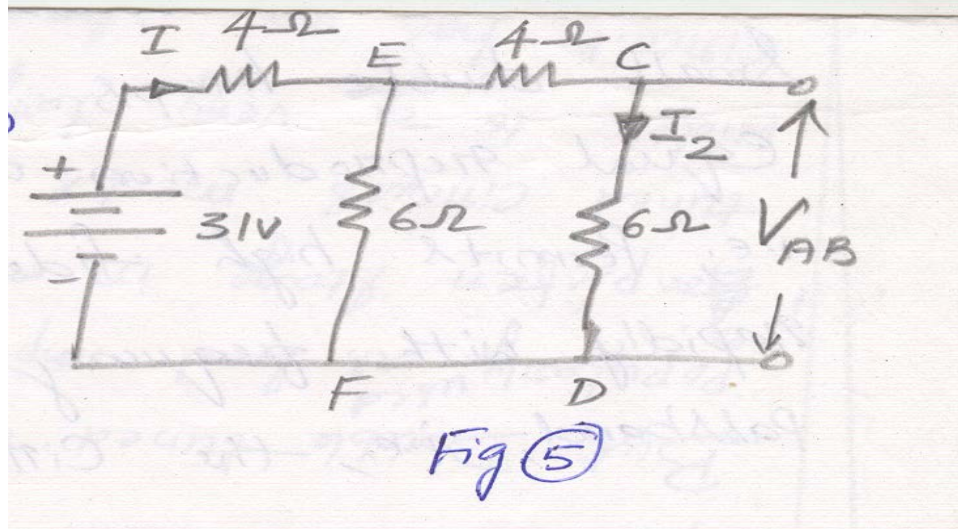 I 4Ω E 4Ω C
I2
+ 31V 6Ω 6Ω VAB
-
F D
Fig 5